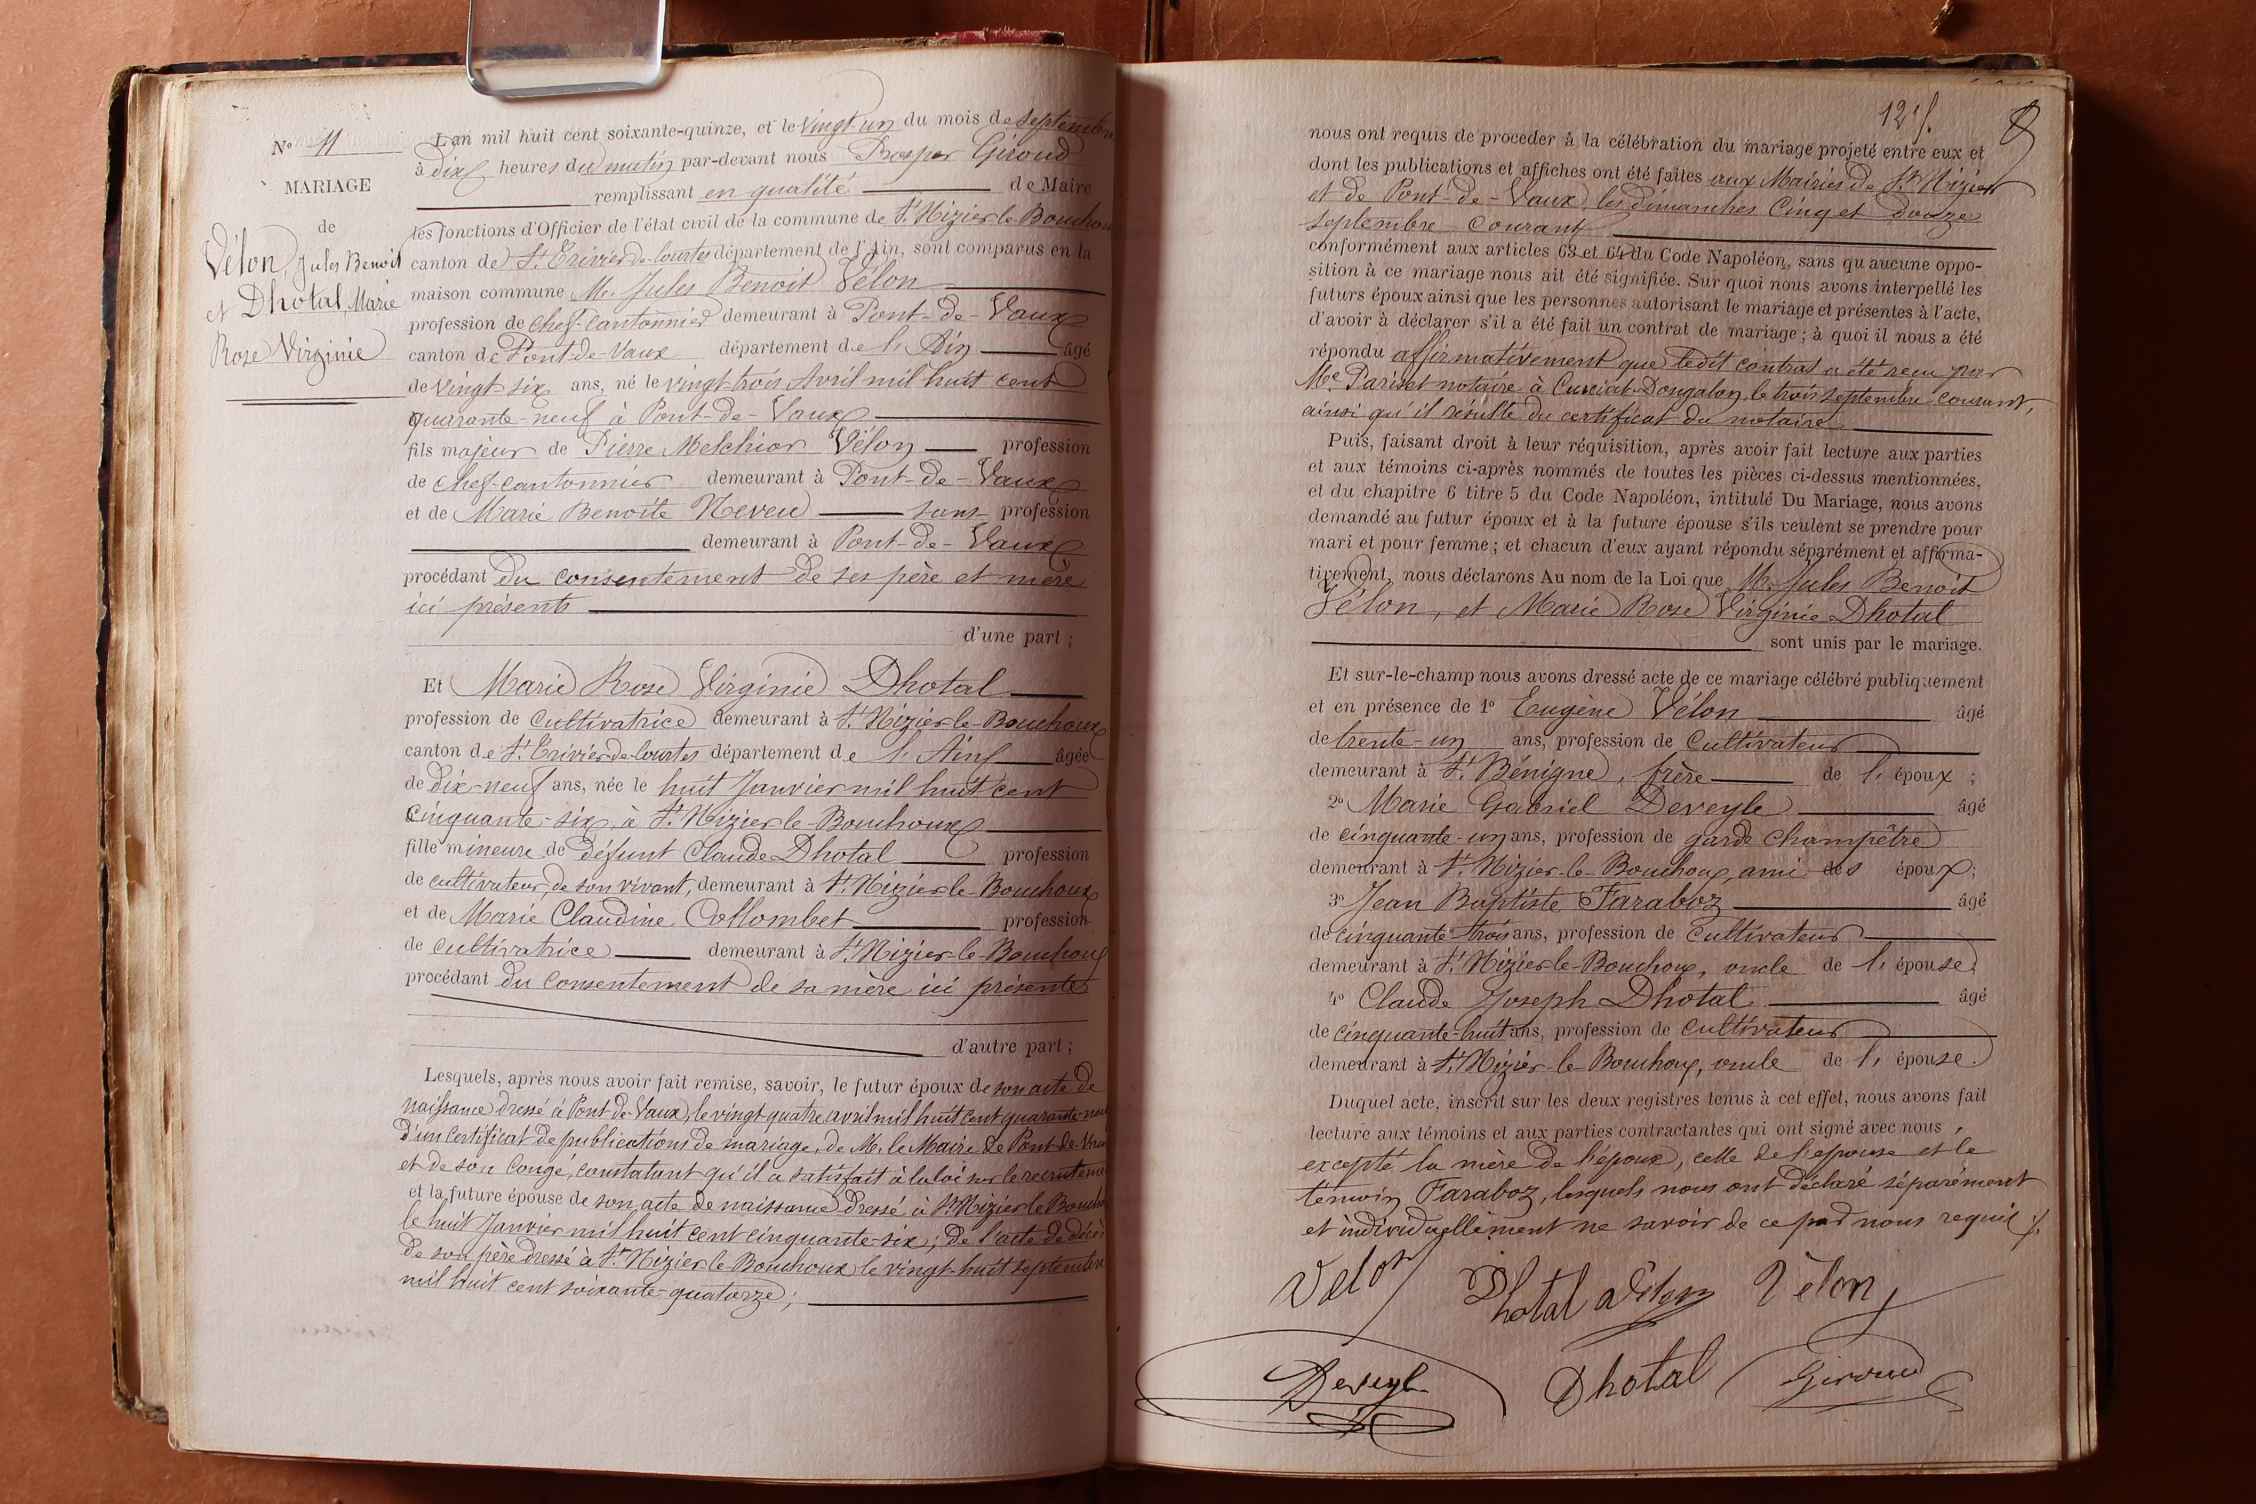 N° 11
MARIAGE
de
Vélon, Jules Benoit
et Dhotal, Marie
Rose Virginie
L'an mil huit cent soixante-quinze, et le vingt un du mois de septembre
à dix heures du matin par-devant nous Prosper Giroud
remplissant en qualité de Maire
les fonctions d'Officier de l'état civil de la commune de St Nizier le Bouchoux
canton de St Trivier-de-Courtes département de l'Ain, sont comparus en la
maison commune Mr. Jules Benoit Vélon
profession de chef-cantonnier demeurant à Pont-de-Vaux
canton de Pont-de-Vaux département de l'Ain âgé
de vingt-six ans, né le vingt trois Avril mil huit cent
quarante-neuf à Pont-de-Vaux
fils majeur de Pierre Melchior Vélon profession
de chef-cantonnier demeurant à Pont-de-Vaux
et de Marie Benoite Neveu sans profession
demeurant à Pont-de-Vaux
procédant du consentement de ses père et mère
ici présents
d'une part ;
Et Marie Rose Virginie Dhotal
profession de cultivatrice demeurant à St Nizier-le-Bouchoux
canton de St Trivier-de-Courtes département de l'Ain âgée
de dix-neuf ans, née le huit Janvier mil huit cent
cinquante-six, à St Nizier-le-Bouchoux
fille mineure de défunt Claude Dhotal profession
de cultivateur, de son vivant, demeurant à St Nizier-le-Bouchoux
et de Marie Claudine Collombet profession
de cultivatrice demeurant à St Nizier-le-Bouchoux
procédant du consentement de sa mère ici présente
d'autre part ;
Lesquels, après nous avoir fait remise, savoir, le futur époux de son acte de
naissance dressé à Pont-de-Vaux, le vingt-quatre avril mil huit cent quarante-neuf
d'un certificat de publications de mariage, de Mr. le Maire de Pont-de-Vaux
et de son congé, constatant qu'il a satisfait à la loi sur le recrutement
et la future épouse de son acte de naissance dressé à St Nizier le Bouchoux
le huit Janvier mil huit cent cinquante-six ; de l'acte de décès
de son père dressé à St Nizier le Bouchoux le vingt-huit septembre
mil huit cent soixante-quatorze ;
125.
nous ont requis de procéder à la célébration du mariage projeté entre eux et
dont les publications et affiches ont été faites aux Mairies de St Nizier
et de Pont-de-Vaux, les dimanches cinq et douze
septembre courant
conformément aux articles 63 et 64 du Code Napoléon, sans qu'aucune oppo-
sition à ce mariage nous ait été signifiée. Sur quoi nous avons interpellé les
futurs époux ainsi que les personnes autorisant le mariage et présentes à l'acte,
d'avoir à déclarer s'il a été fait un contrat de mariage ; à quoi il nous a été
répondu affirmativement que ledit contrat a été reçu par
Me Pariset notaire à Curciat-Dongalon, le trois septembre courant,
ainsi qu'il résulte du certificat du notaire
Puis, faisant droit à leur réquisition, après avoir fait lecture aux parties
et aux témoins ci-après nommés de toutes les pièces ci-dessus mentionnées,
et du chapitre 6 titre 5 du Code Napoléon, intitulé Du Mariage, nous avons
demandé au futur époux et à la future épouse s'ils veulent se prendre pour
mari et pour femme ; et chacun d'eux ayant répondu séparément et affirma-
tivement, nous déclarons Au nom de la Loi que Mr. Jules Benoit
Vélon, et Marie Rose Virginie Dhotal
sont unis par le mariage.
Et sur-le-champ nous avons dressé acte de ce mariage célébré publiquement
et en présence de 1° Eugène Vélon âgé
de trente-un ans, profession de cultivateur
demeurant à St Bénigne, frère de l'époux ;
2° Marie Gabriel Deveyle âgé
de cinquante-un ans, profession de garde champêtre
demeurant à St Nizier-le-Bouchoux, ami des époux ;
3° Jean Baptiste Faraboz âgé
de cinquante-trois ans, profession de cultivateur
demeurant à St Nizier-le-Bouchoux, oncle de l'épouse.
4° Claude Joseph Dhotal âgé
de cinquante-huit ans, profession de cultivateur
demeurant à St Nizier-le-Bouchoux, oncle de l'épouse.
Duquel acte, inscrit sur les deux registres tenus à cet effet, nous avons fait
lecture aux témoins et aux parties contractantes qui ont signé avec nous,
excepté la mère de l'époux, celle de l'épouse et le
témoin Faraboz, lesquels nous ont déclaré séparément
et individuellement ne savoir de ce par nous requis.
Vélon Dhotal Vélon Vélon
Deveyle Dhotal Giroud